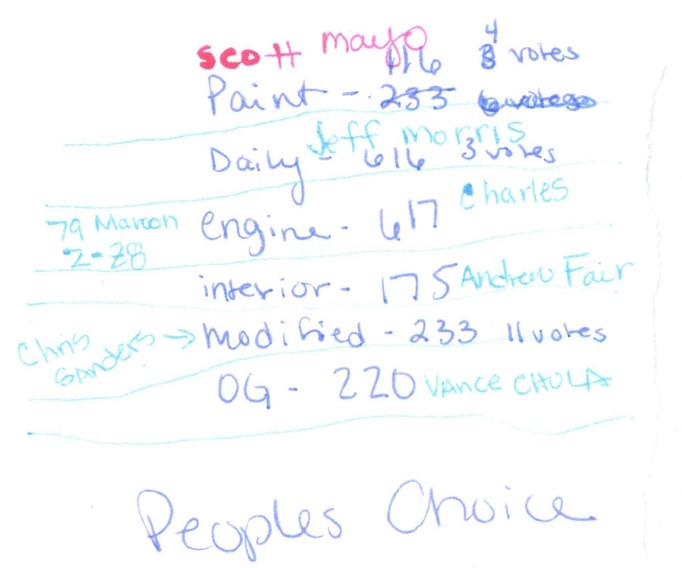 scott mayo
116 4 votes
Paint - 233
Jeff Morris
Daily - 616 3 votes
79 Maroon engine - 617 Charles
Z-28
interior - 175 Andrew Fair
Chris Sanders → modified - 233 11 votes
OG - 220 VANCE CHULA
Peoples Choice